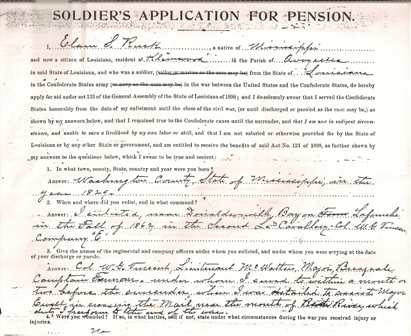 SOLDIER'S APPLICATION FOR PENSION.
I, Elam S. Rush, a native of Mississippi
and now a citizen of Louisiana, resident at in the Parish of Avoyelles
in said State of Louisiana, and who was a soldier, (sailor or marine as the case may be) from the State of Louisiana
in the Confederate States army (or navy as the case may be) in the war between the United States and the Confederate States, do hereby
apply for aid under act 125 of the General Assembly of the State of Louisiana of 1898; and I do solemnly swear that I served the Confederate
States honorably from the date of my enlistment until the close of the civil war, (or until discharged or paroled as the case may be,) as
shown by my answers below, and that I remained true to the Confederate cause until the surrender, and that I am now in indigent circum-
stances, and unable to earn a livelihood by my own labor or skill, and that I am not salaried or otherwise provided for by the State of
Louisiana or by any other State or government, and am entitled to receive the benefits of said Act No. 125 of 1898, as further shown by
my answers to the questions below, which I swear to be true and correct:
1. In what town, county, State, country and year were you born?
Answer: Washington County, State of Mississippi, in the
year 182
2. When and where did you enlist, and in what command?
Answer: I enlisted near Donaldsonville, Bayou Lafourche
in the Fall of 1862 in the Second La Cavalry Col. W G Vincent
Company
3. Give the names of the regimental and company officers under whom you enlisted, and under whom you were serving at the date
of your discharge or parole.
Answer: Col. W. G. Vincent, Lieutenant McWalters, Major
Captain under whom I served to within a month or
two before the surrender, when I was detailed to assist Major
in crossing the Mail near the mouth of Red River, which
duty I to the end of the war.
4. Were you wounded? If so, in what battles, and if not, state under what circumstances during the war you received injury or
injuries.
No